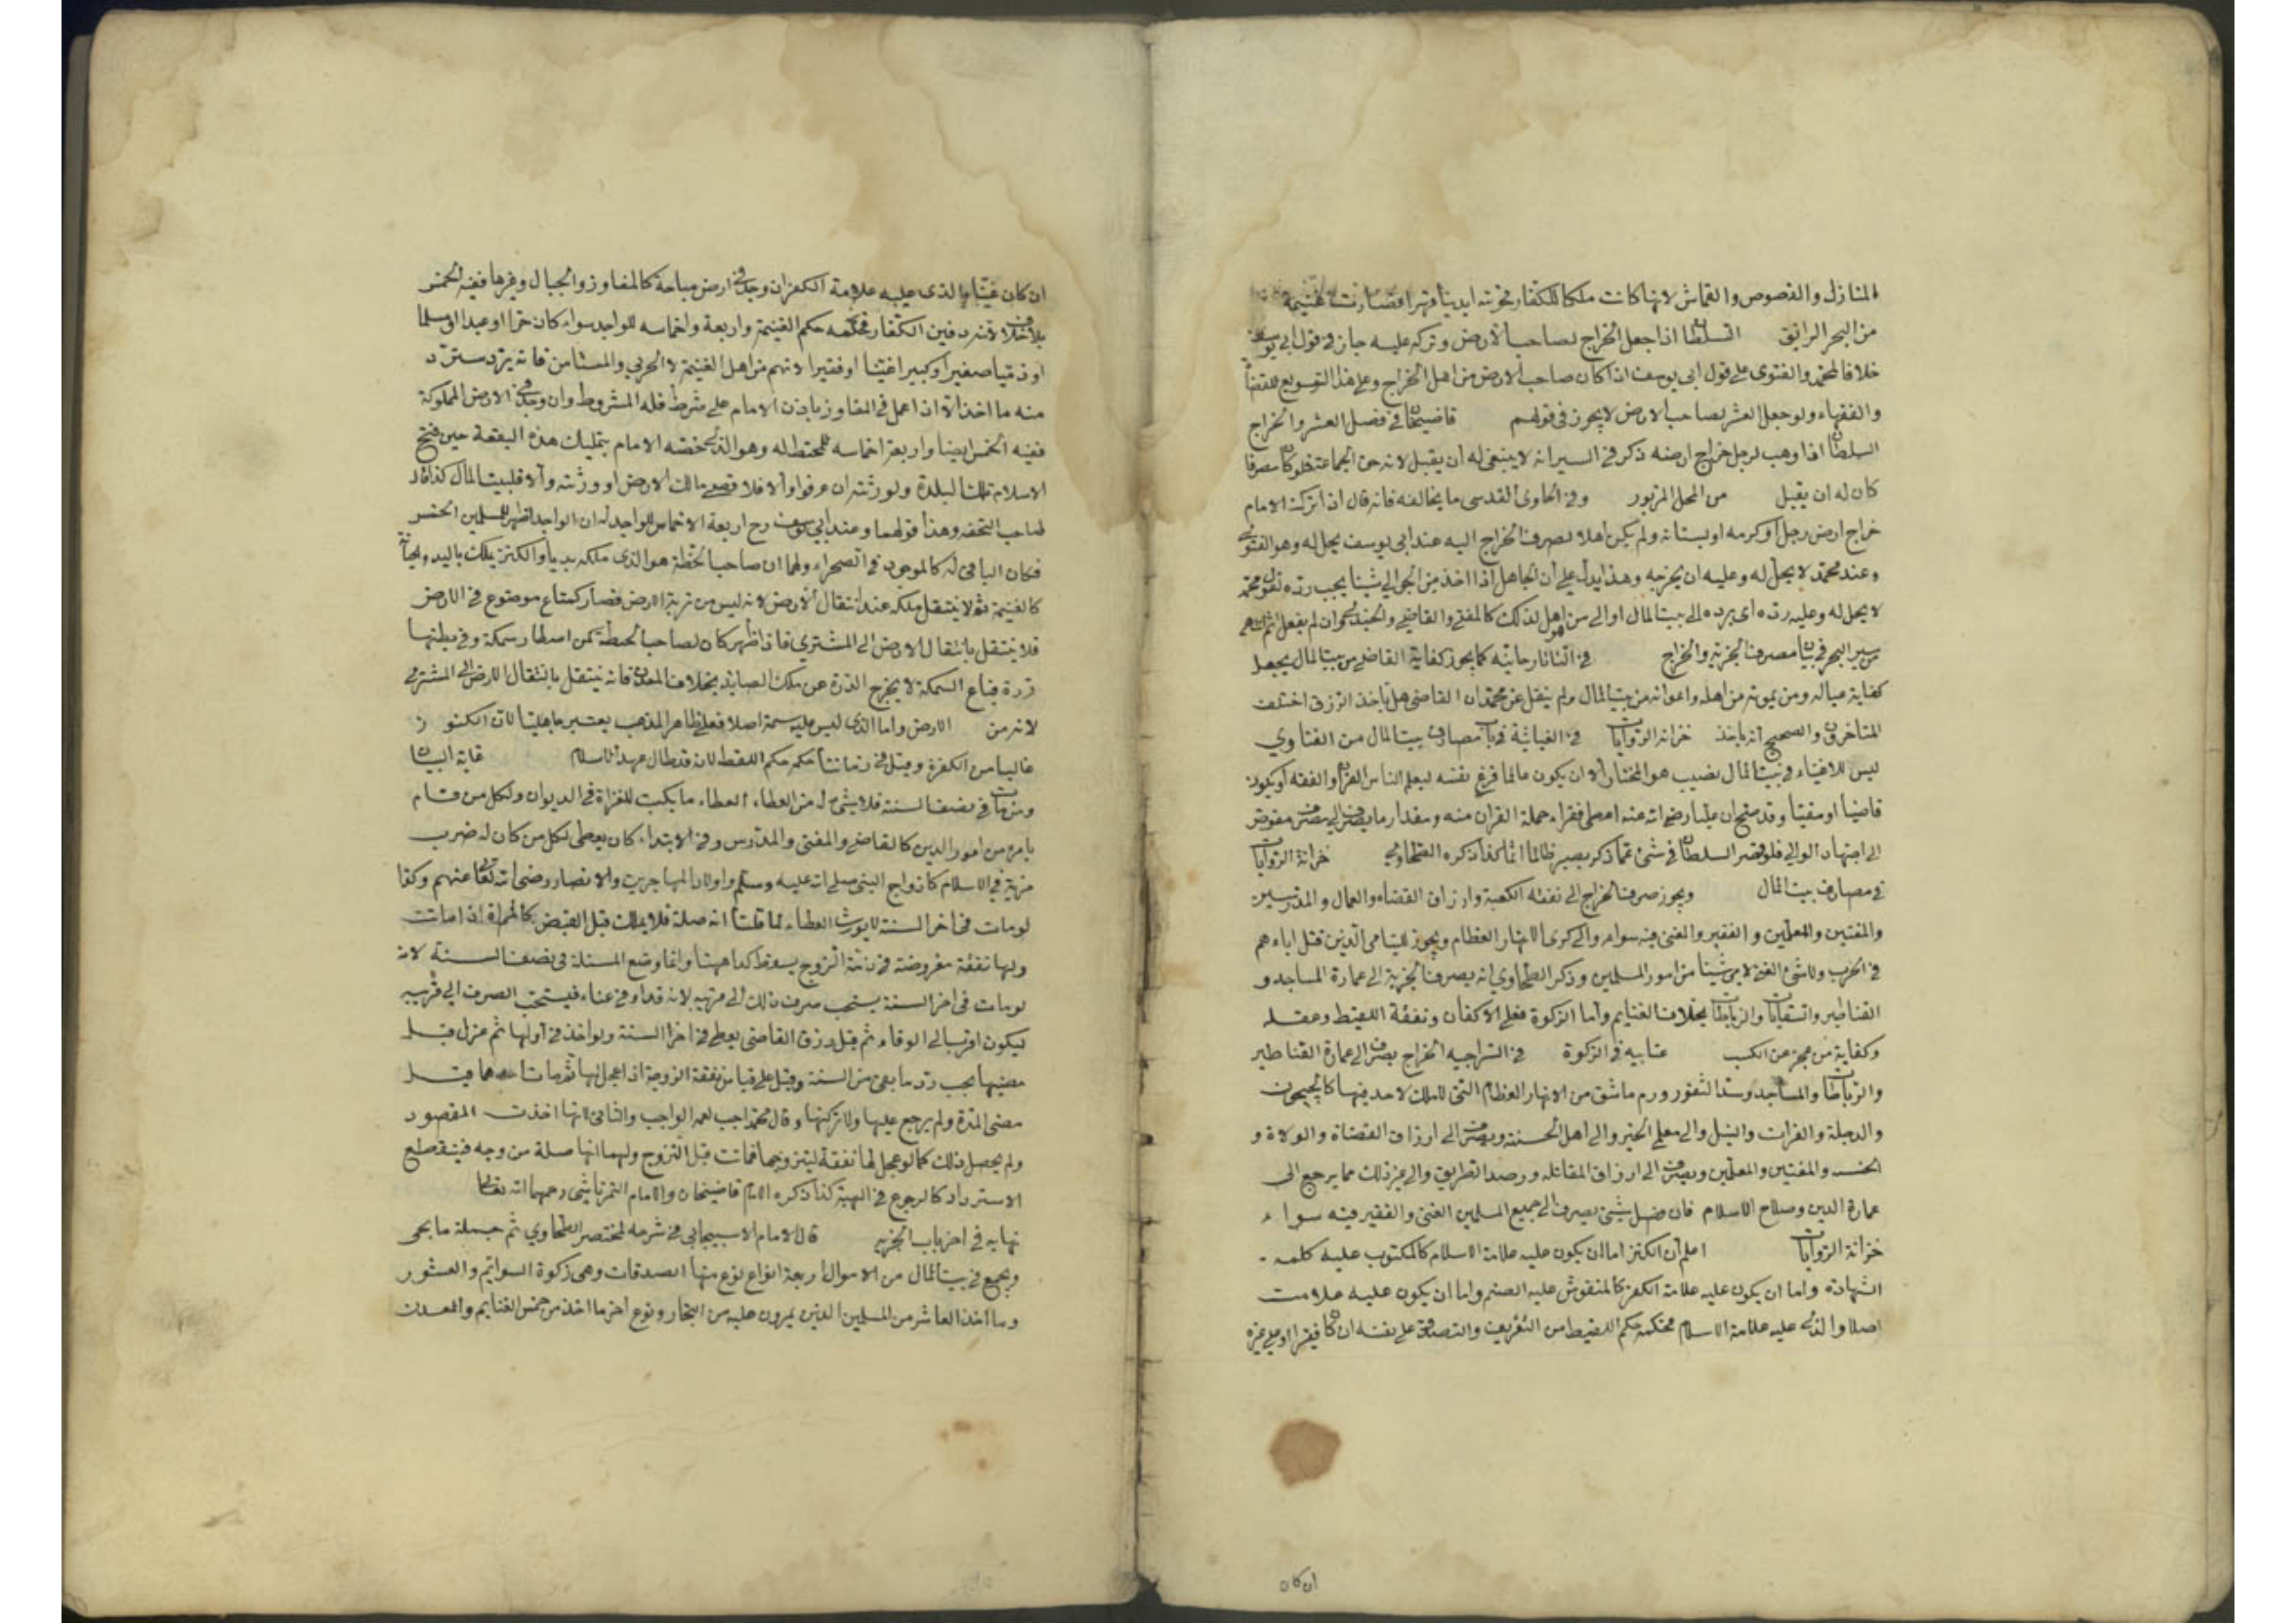 المنازل والفصوص والقماش لانها كانت ملكا للكفار فحوته ايدينا قهرا فصارت غنيمة
من البحر الرايق السلطان اذا جعل الخراج لصاحب الارض وتركه عليه جاز في قول ابي يوسف
خلافا لمحمد والفتوى على قول ابي يوسف اذا كان صاحب الارض من اهل الخراج وعلى هذا التسويغ للقضاة
والفقهاء ولو جعل العشر لصاحب الارض لا يجوز في قولهم قاضيخان في فصل العشر والخراج
السلطان اذا وهب لرجل خراج ارضه ذكر في السير انه لا ينبغي له ان يقبل لانه حق الجماعة فلو كان مصرفا
كان له ان يقبل من المحل المزبور وفي الحاوى القدسي ما يخالفه فانه قال اذا ترك الامام
خراج ارض رجل او كرمه او بستانه ولم يكن اهلا لصرف الخراج اليه عند ابي يوسف يحل له وهو الفتوى
وعند محمد لا يحل له وعليه ان يخرجه وهذا يدل على ان الجاهل اذا اخذ من الجوالي شيئا يجب رده لقول محمد
لا يحل له وعليه رده اى يرده الى بيت المال او الى من هو اهل لذلك كالمفتي والقاضي والجندي وان لم يفعل اثم
من سير البحر في بيان مصرف الجزية والخراج في التاتارخانيه كما يجوز كفاية القاضي من بيت المال يجعل
كفاية عياله ومن يمونه من اهله واعوانه من بيت المال ولم ينقل عن محمد ان القاضي هل ياخذ الرزق اختلف
المتاخرون والصحيح انه ياخذ خزانة الروايات في الغياثية في باب مصارف بيت المال من الفتاوي
ليس للاغنياء في بيت المال نصيب هو المختار الا ان يكون عالما فرغ نفسه ليعلم الناس القران والفقه او يكون
قاضيا او مفتيا وقد صح ان عليا رضي الله عنه اعطى فقراء حملة القران منه ومقدار ما يصرف الى مصرف مفوض
الى اجتهاد الوالي فلو قصر السلطان في شئ مما ذكر يصير ظالما اثما كذا ذكره الطحاوي خزانة الروايات
في مصارف بيت المال ويجوز صرف الخراج الى نفقة الكعبة وارزاق القضاة والعمال والمدرسين
والمفتين والمعلمين والفقير والغني فيه سواء والى كرى الانهار العظام ويجوز لليتامى الذين قتل اباءهم
في الحرب ولا شئ لغني لا يلي شيئا من امور المسلمين وذكر الطحاوي انه يصرف الجزية الى عمارة المساجد و
القناطير والسقايات والرباطات بخلاف الغنايم واما الزكوة فعلى الاكفان ونفقة اللقيط وعقله
وكفاية من عجز عن الكسب عتابيه في الزكوة في السراجيه الخراج يصرف الى عمارة القناطير
والرباطات والمساجد وسد الثغور ورم ما شق من الانهار العظام التي لا ملك لاحد فيها كالجيحون
والدجلة والفرات والنيل والى معلمي الخير والى اهل الحسنة ويصرف الى ارزاق القضاة والولاة و
والمفتين والمعلمين ويصرف الى ارزاق المقاتله ورصد الطريق والى غير ذلك مما يرجع الى
عمارة الدين وصلاح الاسلام فان فضل شئ يصرف الى جميع المسلمين الغني والفقير فيه سواء
خزانة الروايات اعلم ان الكنز اما ان يكون عليه علامة الاسلام كالمكتوب عليه كلمة
الشهادة واما ان يكون عليه علامة الكفر كالمنقوش عليه الصنم واما ان يكون عليه علامت
اصلا والذي عليه علامة الاسلام فحكمه حكم اللقيط من التعريف والتصدق على نفسه ان كان فقيرا او على غيره
ان كان
ان كان غنيا والذى عليه علامة الكفر ان وجد في ارض مباحة كالمفاوز والجبال وغيرها ففيه الخمس
بلا خلاف لانه دفين الكفار فحكمه حكم الغنيمة واربعة واخماسه للواجد سواء كان حرا او عبدا او مسلما
او ذميا صغيرا او كبيرا غنيا او فقيرا لانهم من اهل الغنيمة لا الحربي والمستامن فانه يرد يسترد
منه ما اخذ الا اذا عمل في المفاوز باذن الامام على شرط فله المشروط وان وجد في الارض المملوكة
ففيه الخمس ايضا واربعة اخماسه للمختط له وهو الذي خصه الامام بتمليك هذه البقعة حين فتح
الاسلام تلك البلدة ولورثته ان عرفوا والا فلاقصى مالك الارض او ورثته والا فلبيت المال كذا قال
صاحب التحفه وهذا قولهما وعند ابي يوسف رح اربعة الاخماس للواجد له ان الواجد اظهر للمسلمين الخمس
فكان الباقي له كالموجود في الصحراء ولهما ان صاحب الخطة هو الذى ملكه بديا والكنز يملك باليد ولحيازة
كالغنيمة ثم لا ينتقل ملكه عند انتقال الارض لانه ليس من تربة الارض فصار كمتاع موضوع في الارض
فلا ينتقل بانتقال الارض الى المشتري فاذا ظهر كان لصاحب الخطة كمن اصطاد سمكة وفي بطنها
درة فباع السمكة لا يخرج الدرة عن ملك الصايد بخلاف المعدن فانه ينتقل بانتقال الارض الى المشتري
لانه من الارض واما الذى ليس عليه سمة اصلا فعلى ظاهر المذهب يعتبر جاهليا لان الكنوز
غالبا من الكفرة وقيل في زماننا حكمه حكم اللقط لانه قد طال عهد الاسلام غاية البيان
ومن مات في نصف السنة فلا شئ له من العطاء العطاء ما يكتب للغزاة في الديوان ولكل من قام
بامر من امور الدين كالقاضي والمفتي والمدرس وفي الابتداء كان يعطى لكل من كان له ضرب
مزية في الاسلام كازواج النبي صلى الله عليه وسلم واولاد المهاجرين والانصار رضي الله تعالى عنهم وكذا
لو مات في اخر السنة لا يورث العطاء لما قلنا انه صلة فلا يملك قبل القبض كالمراة اذا ماتت
ولها نفقة مفروضة في ذمة الزوج يسقط كذا ههنا وانما وضع المسئلة في نصف السنة لانه
لو مات في اخر السنة يستحب صرف ذلك الى قريبه لانه قد اوفى عناءه فيستحب الصرف الى قريبه
ليكون اقرب الى الوفاء ثم قيل رزق القاضي يعطى في اخر السنة ولو اخذ في اولها ثم عزل قبل
مضيها يجب رد ما بقي من السنة وقيل على قياس نفقة الزوجة اذا عجل لها ثم مات احدهما قبل
مضى المدة ولم يرجع عليها ولا تركتها وقال محمد احب لعمه الواجب والثاني لانها اخذت المقصود
ولم يحصل ذلك كما لو عجل لها نفقة ليتزوجها فماتت قبل التزوج ولهما انها صلة من وجه فينقطع
الاسترداد كالرجوع في الهبة كذا ذكره الامام قاضيخان والامام التمرتاشي رحمهما الله تعالى
نهايه في اخر باب الجزيه قال الامام الاسبيجابي في شرحه لمختصر الطحاوي ثم جملة ما يجي
ويجمع في بيت المال من الاموال اربعة انواع نوع منها الصدقات وهي زكوة السوايم والعشور
وما اخذ العاشر من المسلمين الذين يمرون عليه من التجار ونوع اخر ما اخذ من خمس الغنايم والمعدن